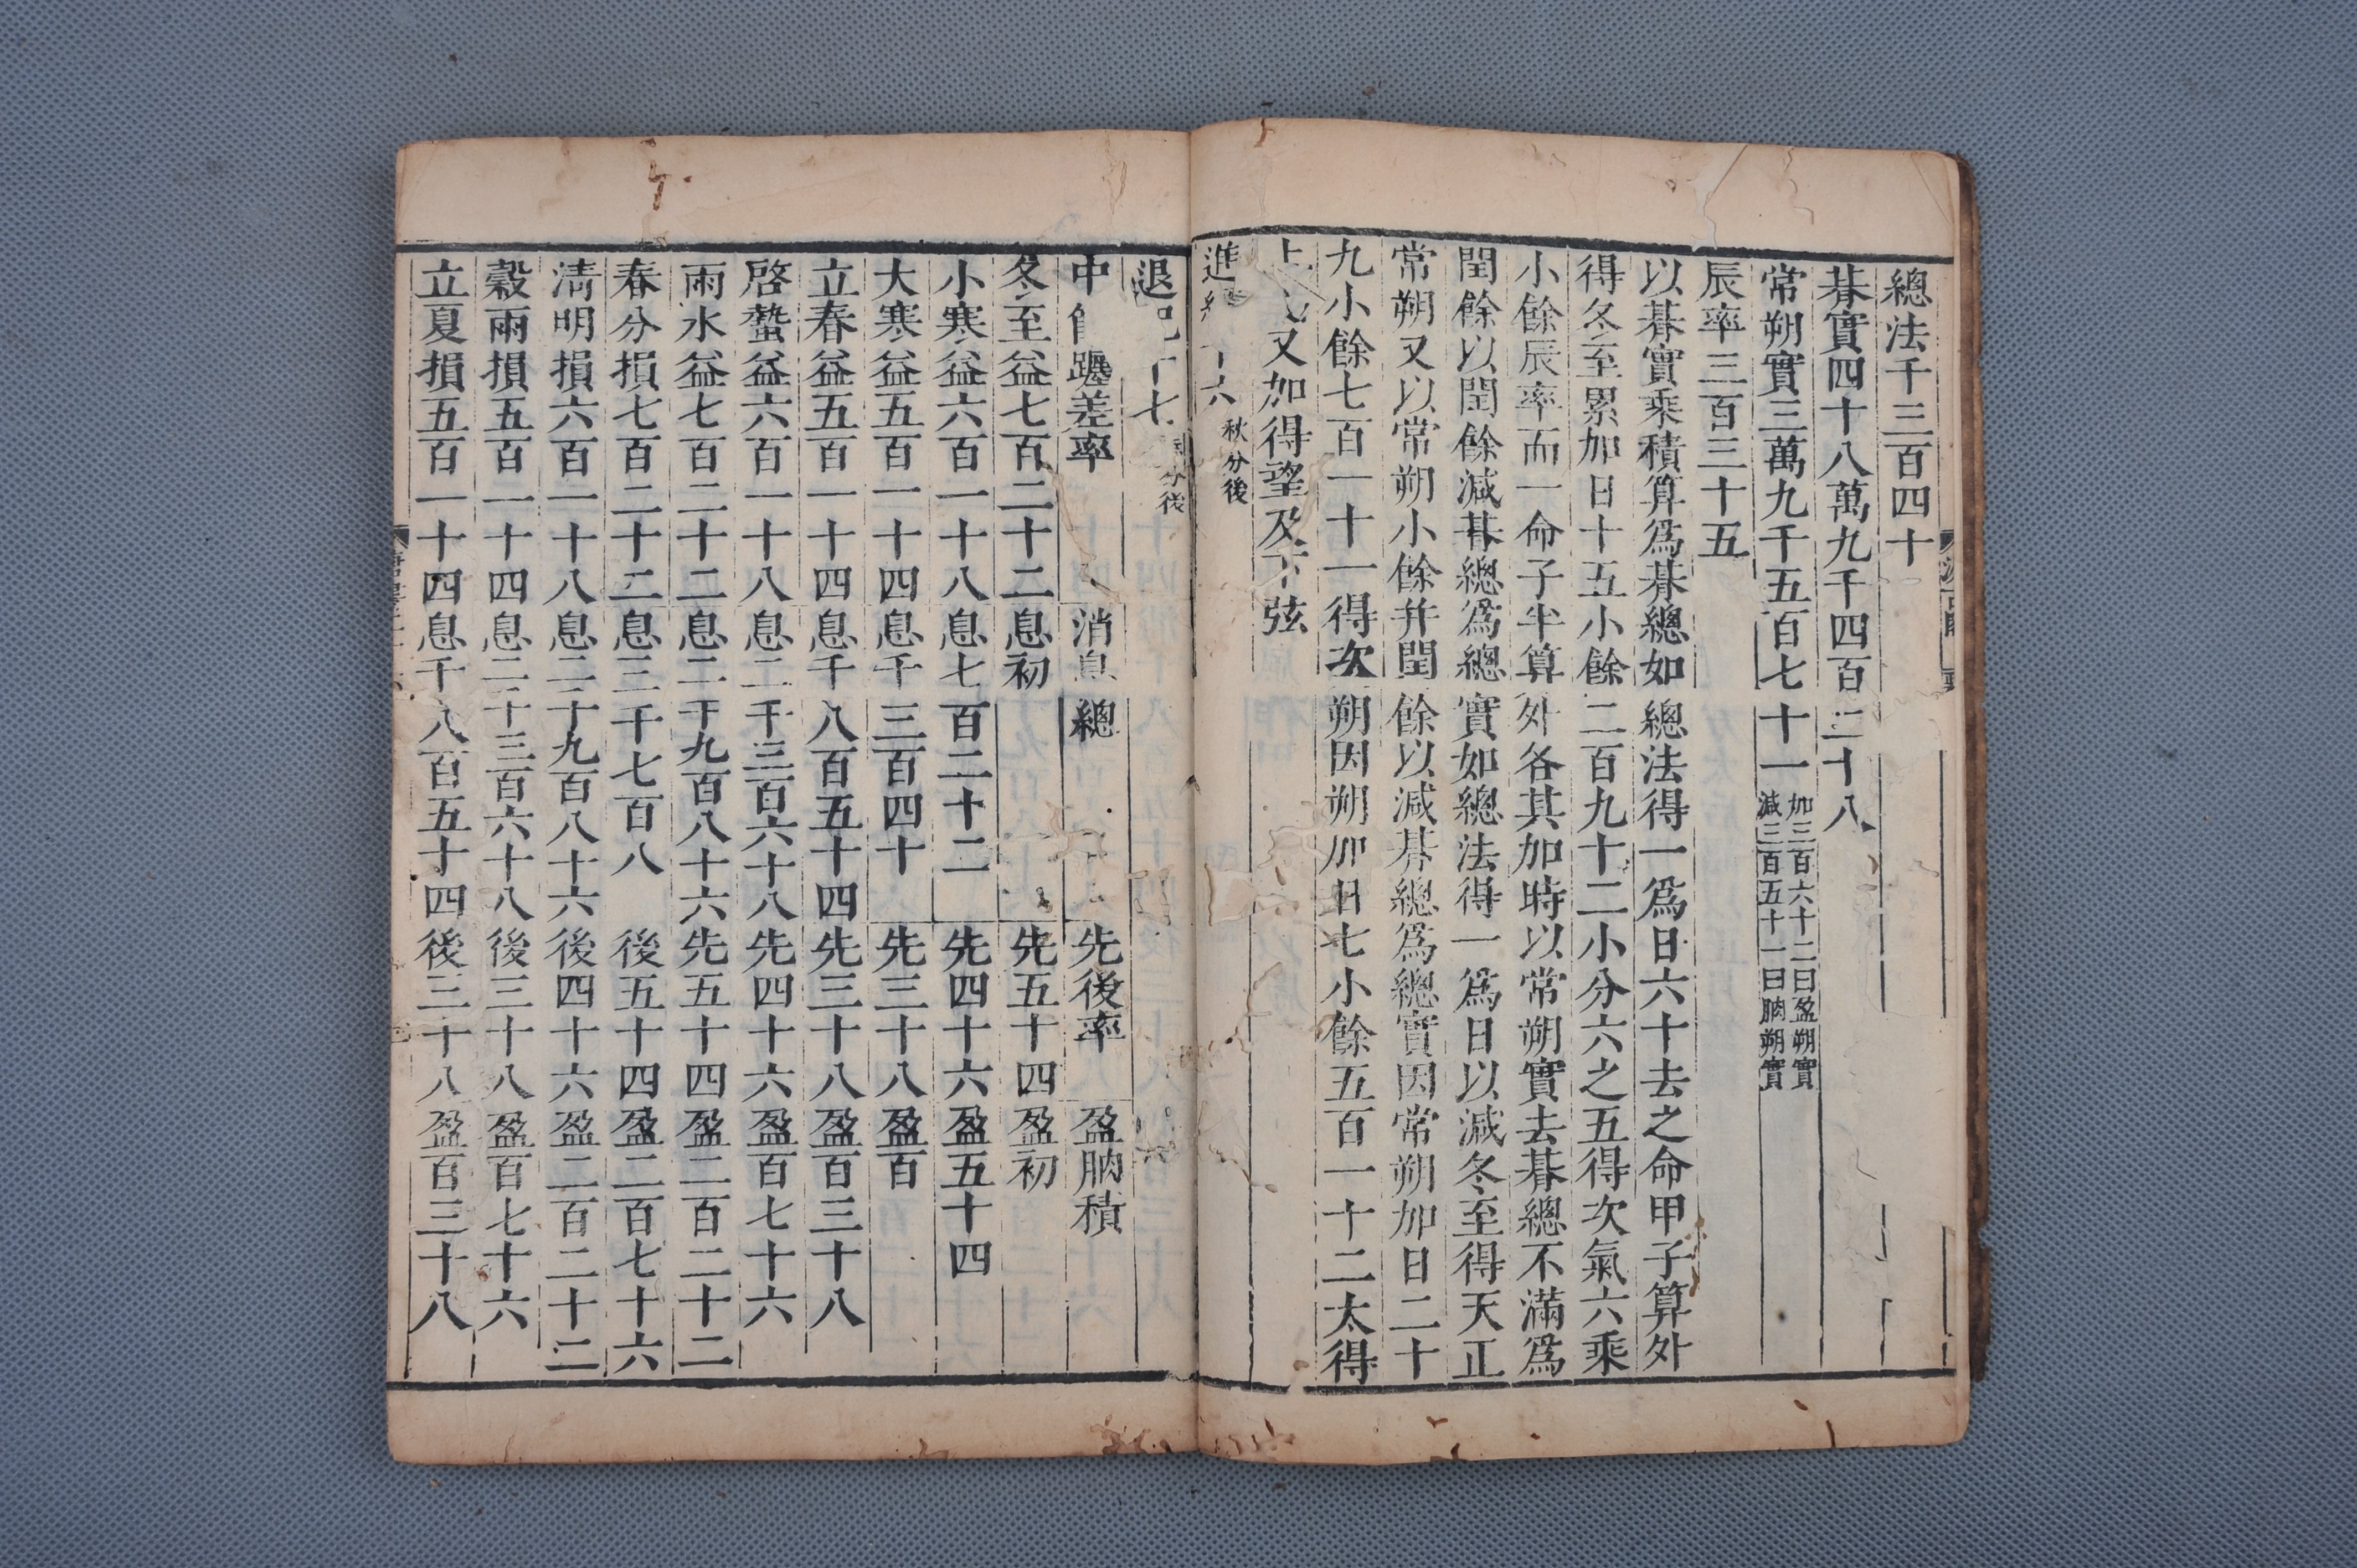 總法千三百四十
朞實四十八萬九千四百二十八
常朔實三萬九千五百七十一加三百六十二曰盈朔實減三百五十一曰朒朔實
辰率三百三十五
以朞實乘積算為朞總如總法得一為日六十去之命甲子算外
得冬至累加日十五小餘二百九十二小分六之五得次氣六乘
小餘辰率而一命子半算外各其加時以常朔實去朞總不滿為
閏餘以閏餘減朞總為總實如總法得一為日以減冬至得天正
常朔又以常朔小餘并閏餘以減朞總為總實因常朔加日二十
九小餘七百一十一得次朔因朔加日七小餘五百一十二太得
上又加得望及下弦
進十六秋分後
退十七分後
中躔差率 消息總 先後率 盈朒積
冬至益七百二十二息初 先五十四盈初
小寒益六百一十八息七百二十二 先四十六盈五十四
大寒益五百一十四息千三百四十 先三十八盈百
立春益五百一十四息千八百五十四先三十八盈百三十八
啓蟄益六百一十八息二千三百六十八先四十六盈百七十六
雨水益七百二十二息二千九百八十六先五十四盈二百二十二
春分損七百二十二息三千七百八 後五十四盈二百七十六
清明損六百一十八息二千九百八十六後四十六盈二百二十二
穀雨損五百一十四息二千三百六十八後三十八盈百七十六
立夏損五百一十四息千八百五十四後三十八盈百三十八